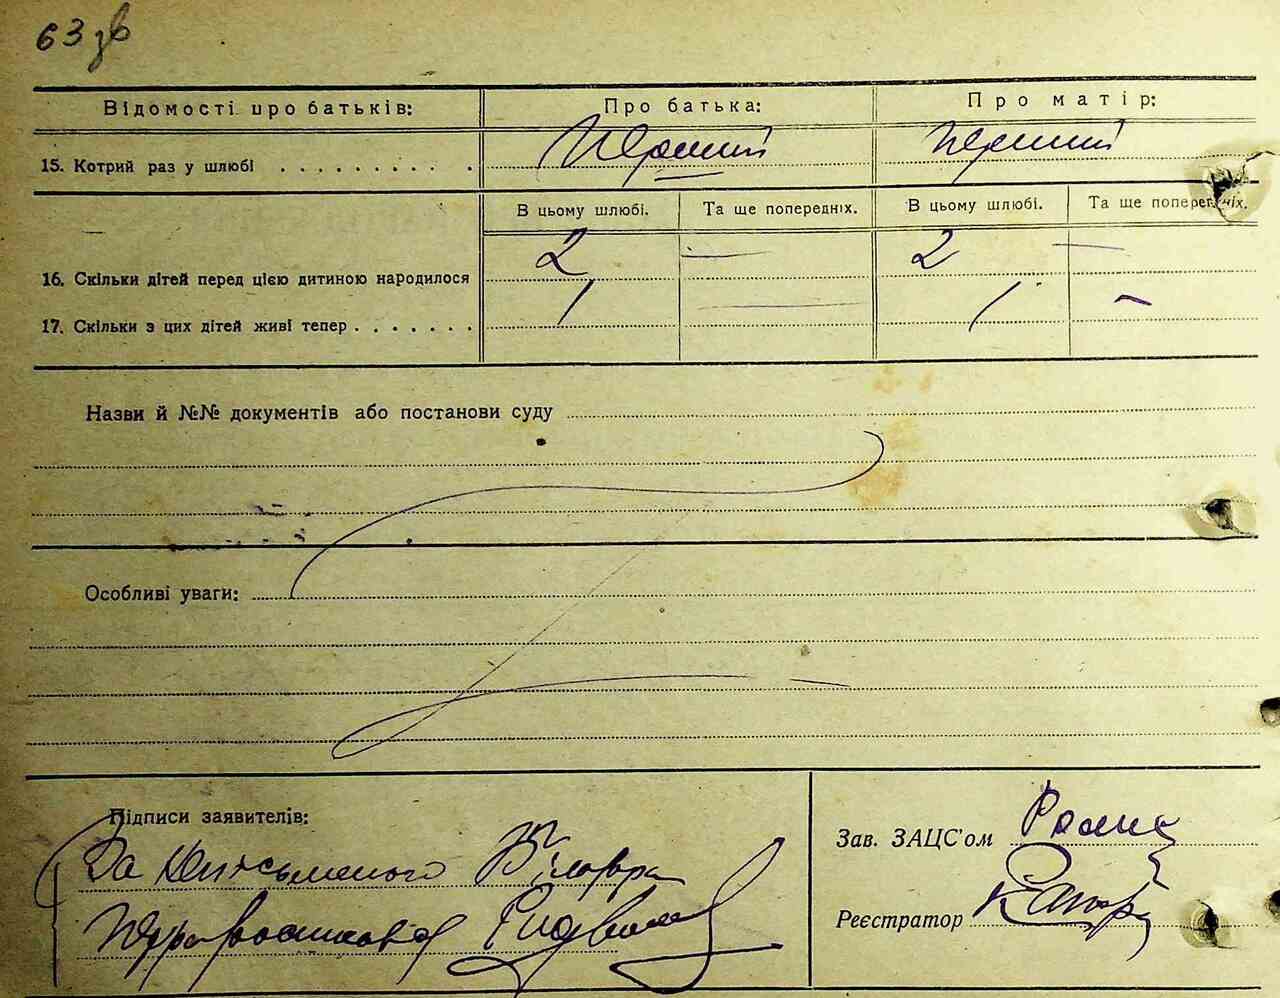 63 зв
Відомості про батьків: Про батька: Про матір:
15. Котрий раз у шлюбі . . . . . . . . . . Перший Перший
В цьому шлюбі. Та ще попередніх. В цьому шлюбі. Та ще попередніх.
16. Скільки дітей перед цією дитиною народилося 2 — 2 —
17. Скільки з цих дітей живі тепер . . . . . . . 1 — 1 —
Назви й №№ документів або постанови суду
Особливі уваги:
Підписи заявителів:
За неписьменого
Зав. ЗАЦС'ом
Реєстратор